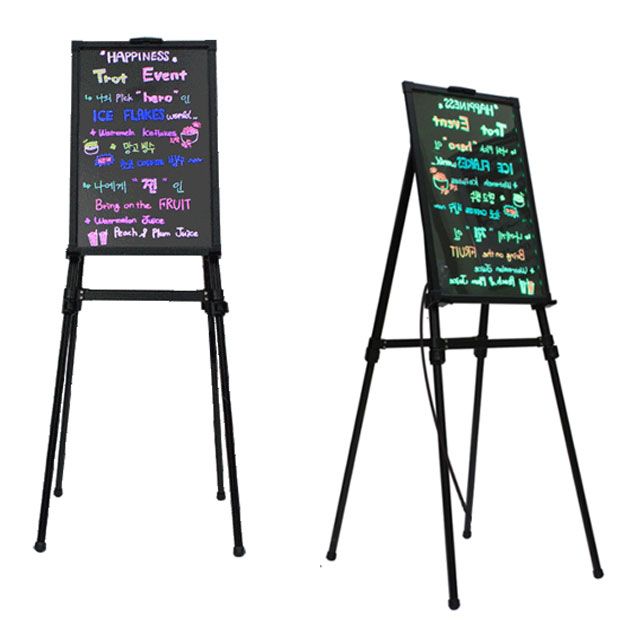 *HAPPINESS*
Trot Event
↳ 나의 Pick "hero" 인
ICE FLAKES world..
+ Waremeln Iceflakes
+ 망고 빙수
초코 cookie 빙수 ~~
↳ 나에게 "찐" 인
Bring on the FRUIT
+ Warmelon Juice
Peach & Plum Juice
*HAPPINESS*
Trot Event
↳ 나의 Pick "hero" 인
ICE FLAKES world..
+ Waremeln Iceflakes
+ 망고 빙수
초코 cookie 빙수 ~~
↳ 나에게 "찐" 인
Bring on the FRUIT
+ Warmelon Juice
Peach & Plum Juice